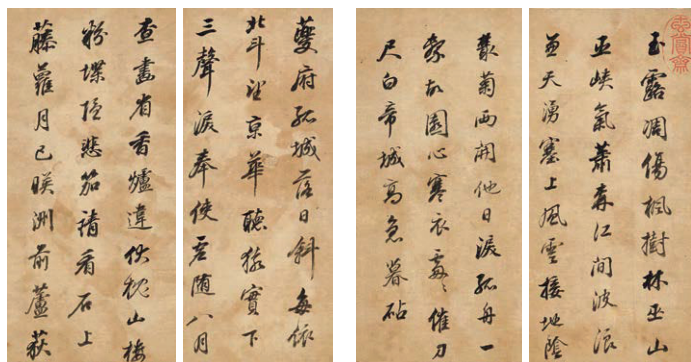 玄賞齋
玉露凋傷楓樹林巫山
巫峽氣蕭森江間波浪
兼天湧塞上風雲接地陰
叢菊兩開他日淚孤舟一
繫故園心寒衣處〻催刀
尺白帝城高急暮砧
夔府孤城落日斜每依
北斗望京華聽猿實下
三聲淚奉使虛隨八月
查畫省香爐違伏枕山樓
粉堞隱悲笳請看石上
藤蘿月已映洲前蘆荻